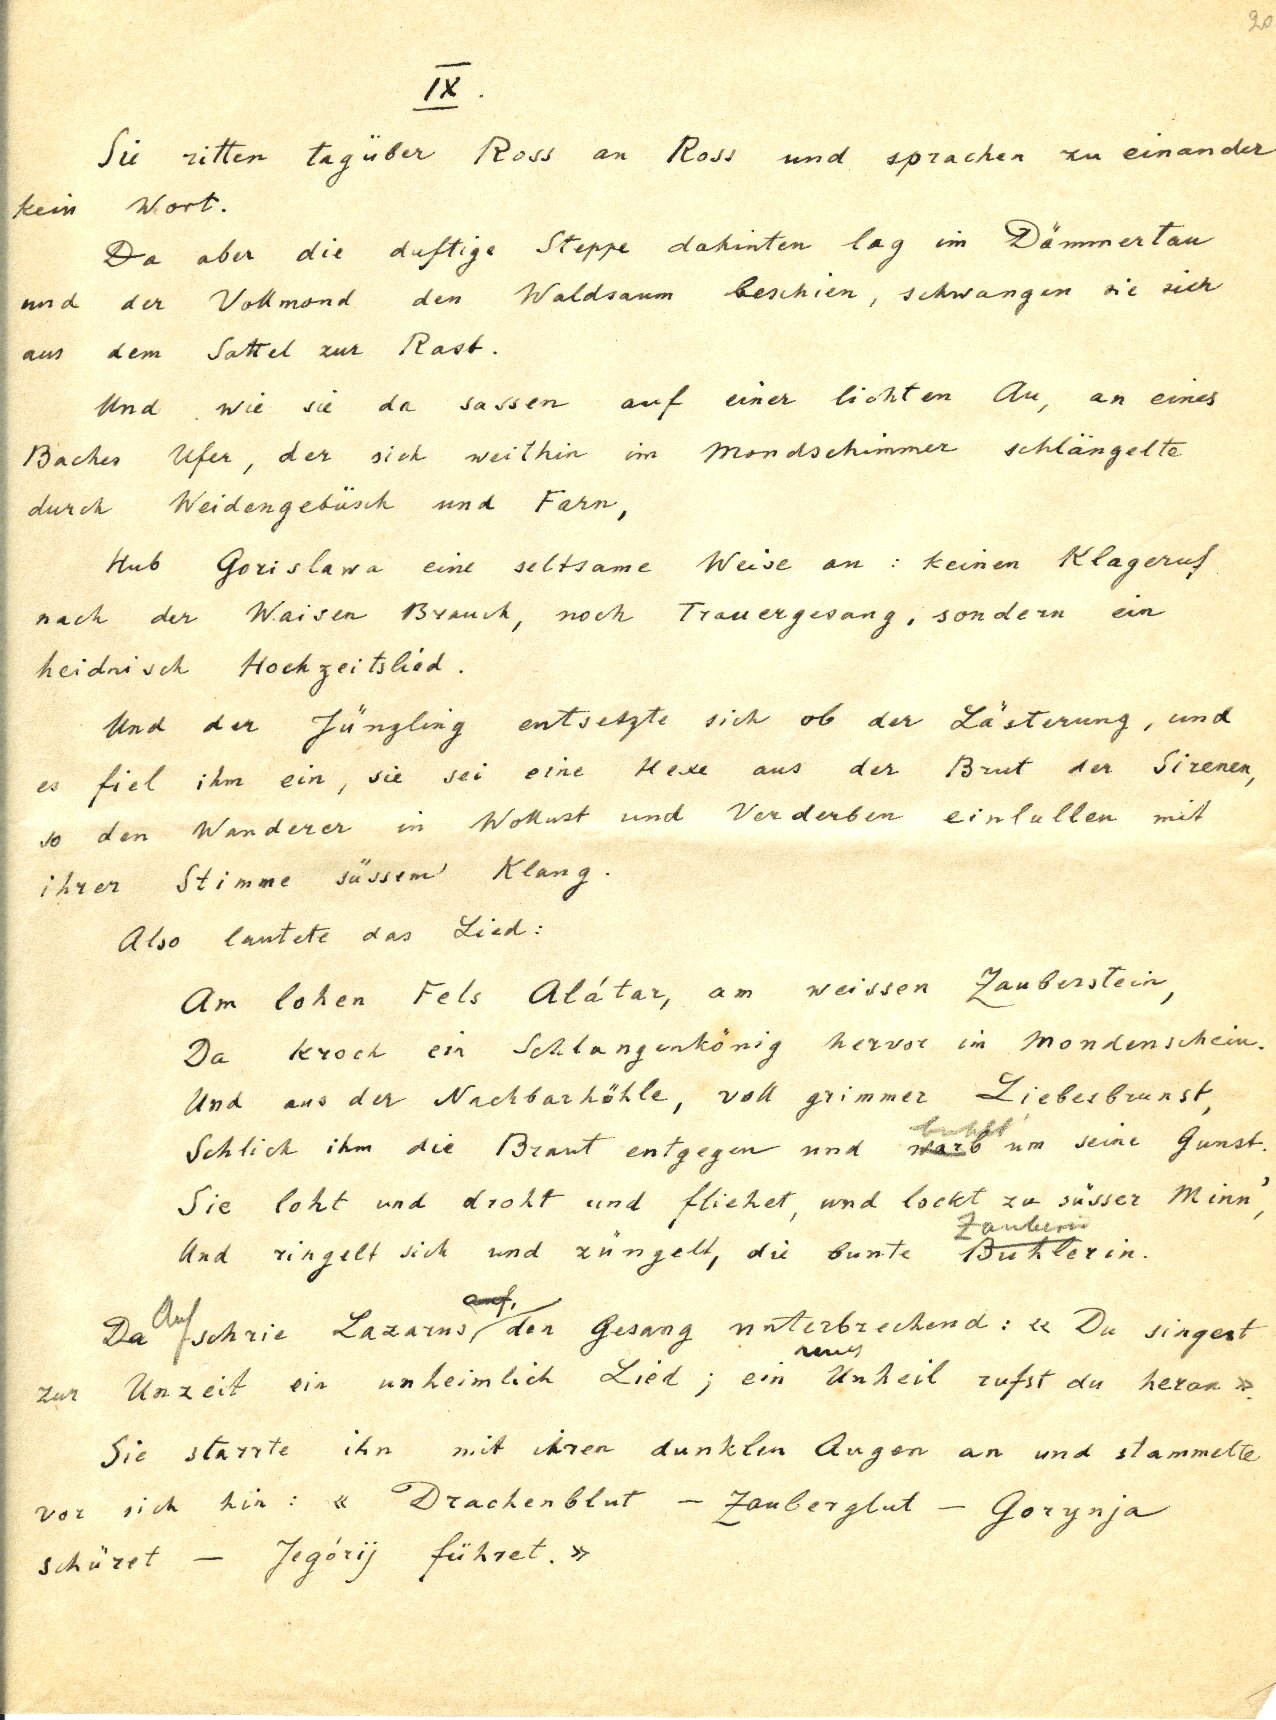 20
IX.
Sie ritten tagüber Ross an Ross und sprachen zu einander
kein Wort.
Da aber die duftige Steppe dahinten lag im Dämmertau
und der Vollmond den Waldsaum beschien, schwangen sie sich
aus dem Sattel zur Rast.
Und wie sie da sassen auf einer lichten Au, an eines
Baches Ufer, der sich weithin im Mondschimmer schlängelte
durch Weidengebüsch und Farn,
Hub Gorislawa eine seltsame Weise an: keinen Klageruf
nach der Waisen Brauch, noch Trauergesang, sondern ein
heidnisch Hochzeitslied.
Und der Jüngling entsetzte sich ob der Lästerung, und
es fiel ihm ein, sie sei eine Hexe aus der Brut der Sirenen,
so den Wanderer in Wollust und Verderben einlullen mit
ihrer Stimme süssem Klang.
Also lautete das Lied:
Am lohen Fels Alátar, am weissen Zauberstein,
Da kroch ein Schlangenkönig hervor im Mondenschein.
Und aus der Nachbarhöhle, voll grimmer Liebesbrunst,
buhlt
Schlich ihm die Braut entgegen und warb um seine Gunst.
Sie loht und droht und fliehet, und lockt zu süsser Minn',
Zauberin
Und ringelt sich und züngelt, die bunte Buhlerin.
Auf auf,
Da schrie Lazarus, den Gesang unterbrechend: « Du singest
neues
zur Unzeit ein unheimlich Lied; ein Unheil rufst du heran ».
Sie starrte ihn mit ihren dunklen Augen an und stammelte
vor sich hin: « Drachenblut — Zauberglut — Gorynja
schüret — Jegórij führet. »